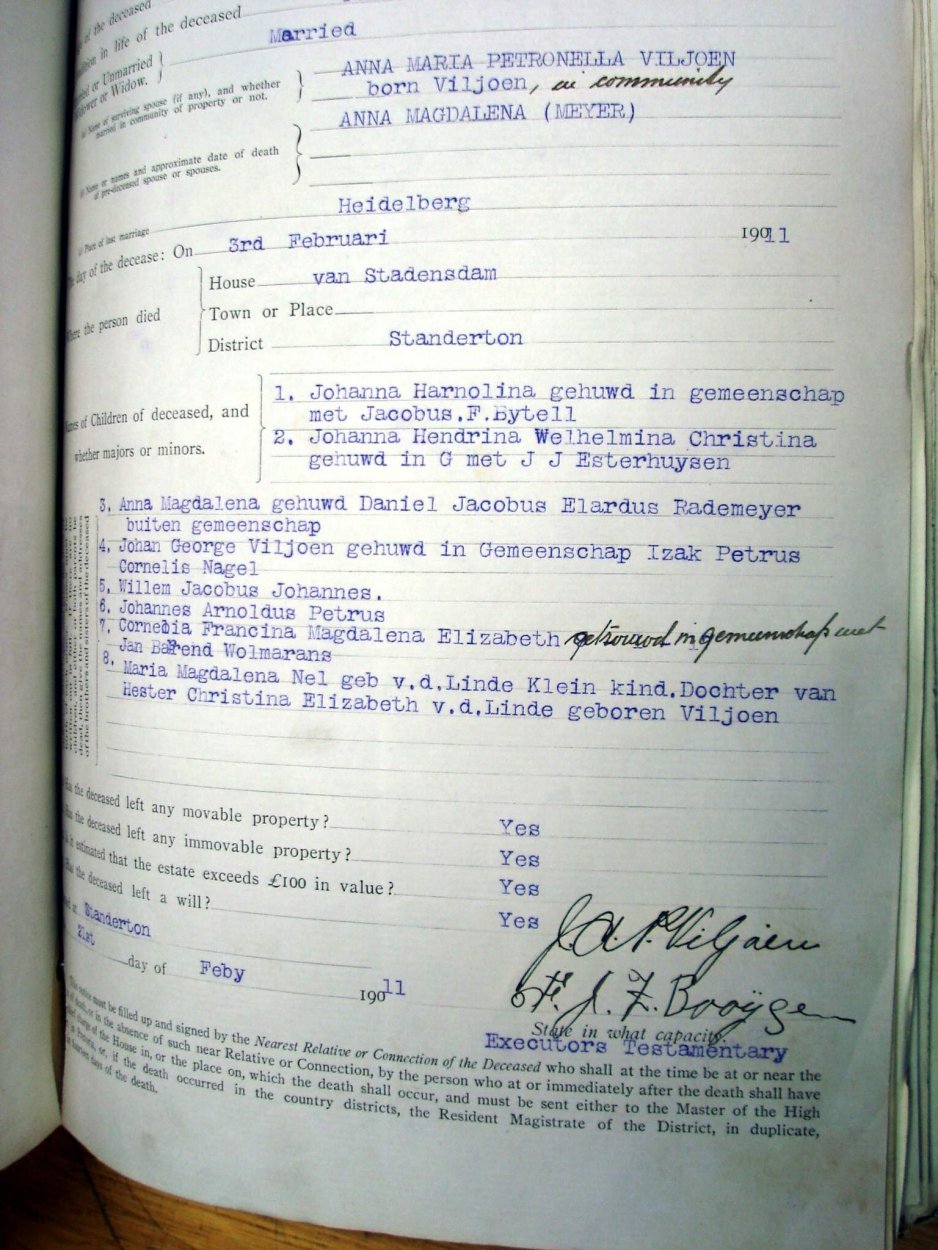 of the deceased
in life of the deceased Married
or Unmarried
or Widow.
Name of surviving spouse (if any), and whether married in community of property or not.
ANNA MARIA PETRONELLA VILJOEN
born Viljoen, in community
Name or names and approximate date of death of pre-deceased spouse or spouses.
ANNA MAGDALENA (MEYER)
Place of last marriage Heidelberg
day of the decease: On 3rd Februari 19011
the person died
House van Stadensdam
Town or Place
District Standerton
of Children of deceased, and
whether majors or minors.
1. Johanna Harnolina gehuwd in gemeenschap
met Jacobus.F.Bytell
2. Johanna Hendrina Welhelmina Christina
gehuwd in G met J J Esterhuysen
3. Anna Magdalena gehuwd Daniel Jacobus Elardus Rademeyer
buiten gemeenschap
4. Johan George Viljoen gehuwd in Gemeenschap Izak Petrus
Cornelis Nagel
5. Willem Jacobus Johannes.
6. Johannes Arnoldus Petrus
7. Cornelia Francina Magdalena Elizabeth getrouwd in gemeenschap met
Jan Barend Wolmarans
8. Maria Magdalena Nel geb v.d.Linde Klein kind.Dochter van
Hester Christina Elizabeth v.d.Linde geboren Viljoen
dead, then give the names and addresses
of the brothers and sisters of the deceased
the deceased left any movable property? Yes
the deceased left any immovable property? Yes
estimated that the estate exceeds £100 in value? Yes
the deceased left a will? Yes
at Standerton
21st day of Feby 19011
J.A.P. Viljoen
J. Z. Booÿsen
State in what capacity.
Executors Testamentary
notice must be filled up and signed by the Nearest Relative or Connection of the Deceased who shall at the time be at or near the
of death, or in the absence of such near Relative or Connection, by the person who at or immediately after the death shall have
charge of the House in, or the place on, which the death shall occur, and must be sent either to the Master of the High
or, if the death occurred in the country districts, the Resident Magistrate of the District, in duplicate,
days of the death.